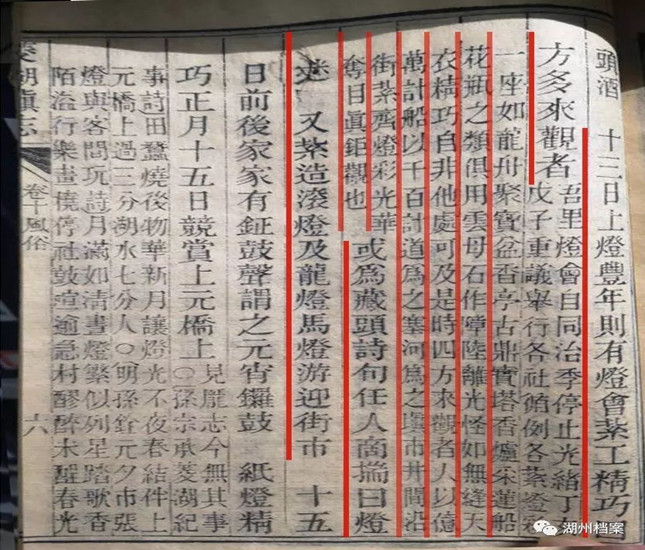 頭酒 十三日上燈豐年則有燈會紮工精巧
方多來觀者
吾里燈會自同治季停止光緒丁
戊子重議舉行各社循例各紮燈
一座如龍舟聚寶盆香亭古鼎寶塔香爐采蓮船
花瓶之類俱用雲母石作障陸離光怪如無縫天
衣精巧自非他處可及是時四方來觀者人以億
萬計船以千百計道為之塞河為之填市井間沿
街紮齊燈彩光華
奪目眞鉅觀也
或為藏頭詩句任人商揣曰燈
謎 又紮造滾燈及龍燈馬燈游迎街市 十五
日前後家家有鉦鼓聲謂之元宵鑼鼓 紙燈精
巧正月十五日競賞上元橋上
見嚴志今無其事
○孫宗承菱湖紀
事詩田蠶燒後物華新月讓燈光不夜春結伴上
元橋上過三分湖水七分人○明孫銓元夕市張
燈與客間玩詩月滿如清晝燈繁似列星踏歌香
陌溢行樂畫橈停社鼓喧逾急村醪醉未醒春光
菱湖鎮志 卷十風俗 六
湖州档案